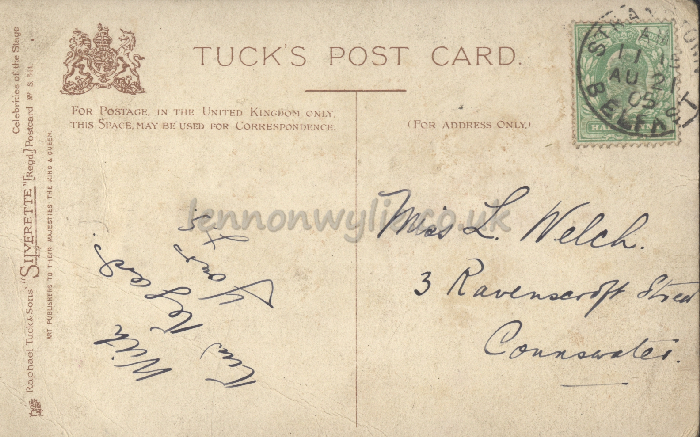 TUCK'S POST CARD.
FOR POSTAGE IN THE UNITED KINGDOM ONLY,
THIS SPACE, MAY BE USED FOR CORRESPONDENCE.
(FOR ADDRESS ONLY.)
Celebrities of the Stage
Raphael Tuck & Sons' "SILVERETTE" [Regd.] Postcard
ART PUBLISHERS TO THEIR MAJESTIES THE KING & QUEEN.
BELFAST
11
AU
05
HALF
lennonwylie.co.uk
With
Kind Regards.
Yours
Miss L. Welch.
3 Ravenscroft Street
Connswater.